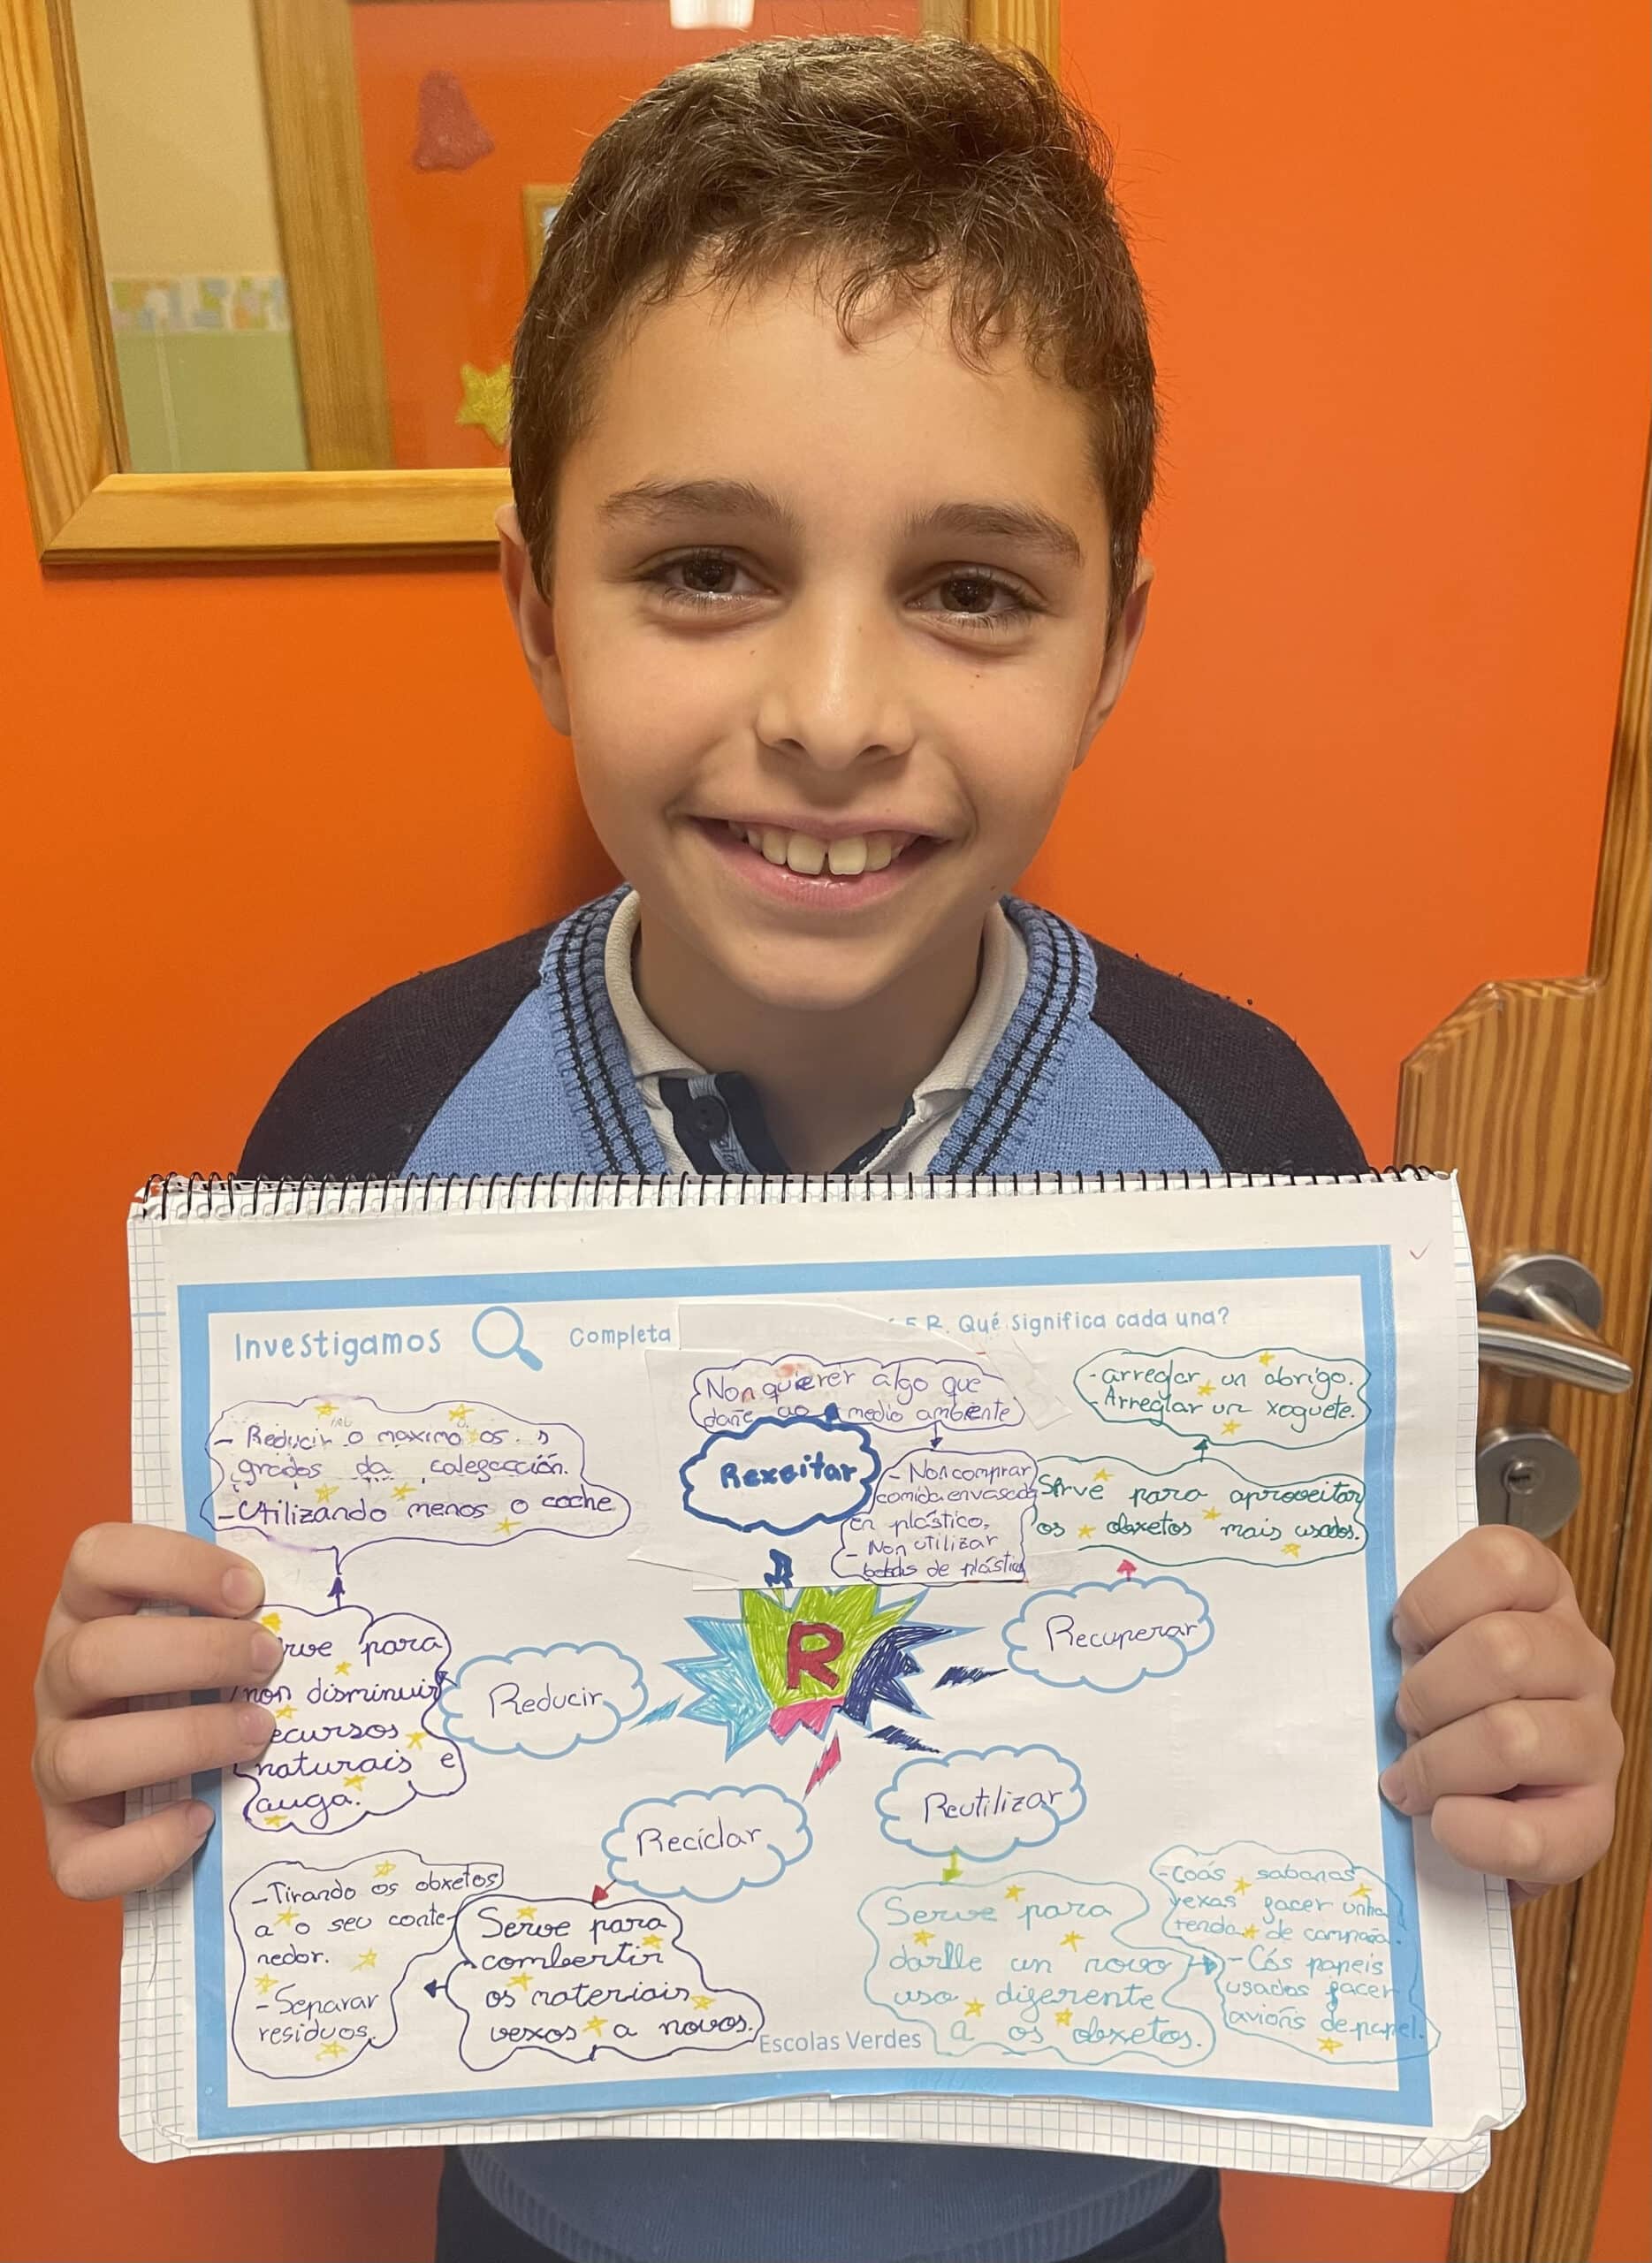 Investigamos
Completa
5 R. Qué significa cada una?
Non quierer algo que
dañe ao medio ambiente
Rexeitar
- Non comprar
comida envasada
en plástico.
- Non utilizar
de plástico
- arreglar un abrigo.
- Arreglar un xoguete.
Serve para aproveitar
os obxetos mais usados.
Recuperar
- Reducir o maximo os
grados da calegacción.
- Utilizando menos o coche
para
non disminuir
naturais e
auga.
Reducir
R
Reciclar
Reutilizar
- Tirando os obxetos
a o seu conte-
nedor.
- Separar
residuos.
Serve para
combertir
os materiais
vexos a novos.
Serve para
darlle un novo
uso diferente
a os obxetos.
- Coas sabanas
vexas facer unha
tenda de campaña.
- Cós papeis
usados facer
avións de papel.
Escolas Verdes